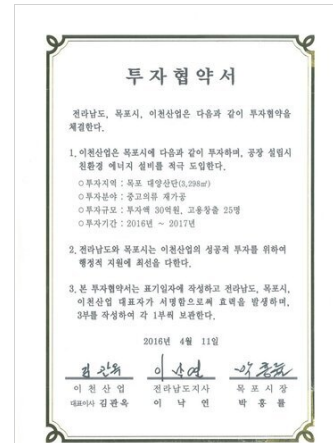 투자협약서
전라남도, 목포시, 이천산업은 다음과 같이 투자협약을
체결한다.
1. 이천산업은 목포시에 다음과 같이 투자하며, 공장 설립시
친환경 에너지 설비를 적극 도입한다.
○투자지역 : 목포 대양산단(3,298㎡)
○투자분야 : 중고의류 재가공
○투자규모 : 투자액 30억원, 고용창출 25명
○투자기간 : 2016년 ~ 2017년
2. 전라남도와 목포시는 이천산업의 성공적 투자를 위하여
행정적 지원에 최선을 다한다.
3. 본 투자협약서는 표기일자에 작성하고 전라남도, 목포시,
이천산업 대표자가 서명함으로써 효력을 발생하며,
3부를 작성하여 각 1부씩 보관한다.
2016년 4월 11일
이천산업 전라남도지사 목포시장
대표이사 김관옥 이낙연 박홍률